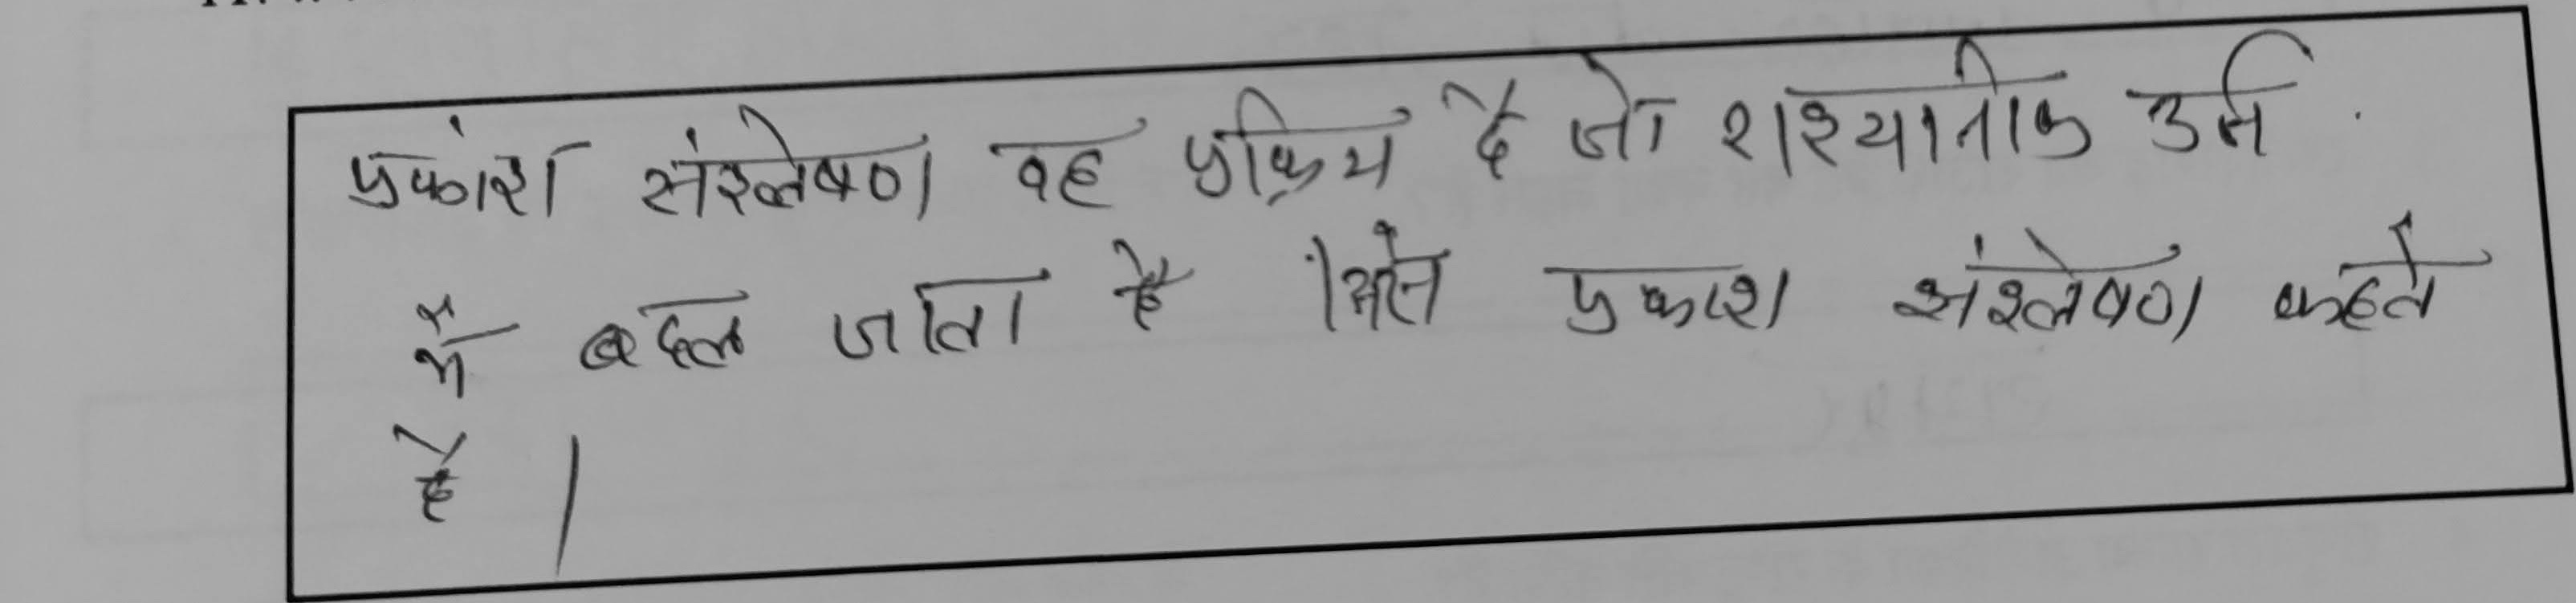 प्रकांश संश्लेषण वह प्रक्रिय है जो राश्यानीक उर्जा
में बदल जाता है । प्रकाश संश्लेषण कहते
है ।